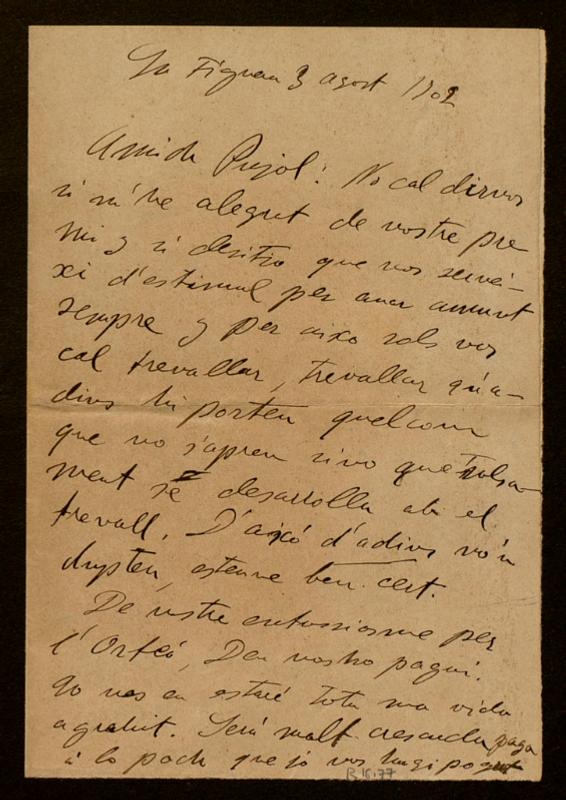 La Figuera 3 agost 1902
Amich Pujol: No cal dirvos
si m'he alegrat de vostre pre
mi y si desitjo que vos servei-
xi d'estimul per anar amunt
sempre y per aixo sols vos
cal trevallar, trevallar qu'a-
dins hi porteu quelcom
que no s'apren sino que solsa-
ment se desarrolla ab el
trevall. D'aixó d'adins no'n
dupteu, esteune ben cert.
De vostre entussiasme per
l'Orfeó, Deu vos ho pagui.
Jo vos en estaré tota ma vida
agrahit. Será molt crescuda paga
á lo poch que jo vos hagi pogut
B 15.77